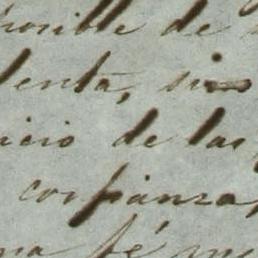 posible de
venta, sin
icio de las
confianza,
na fé